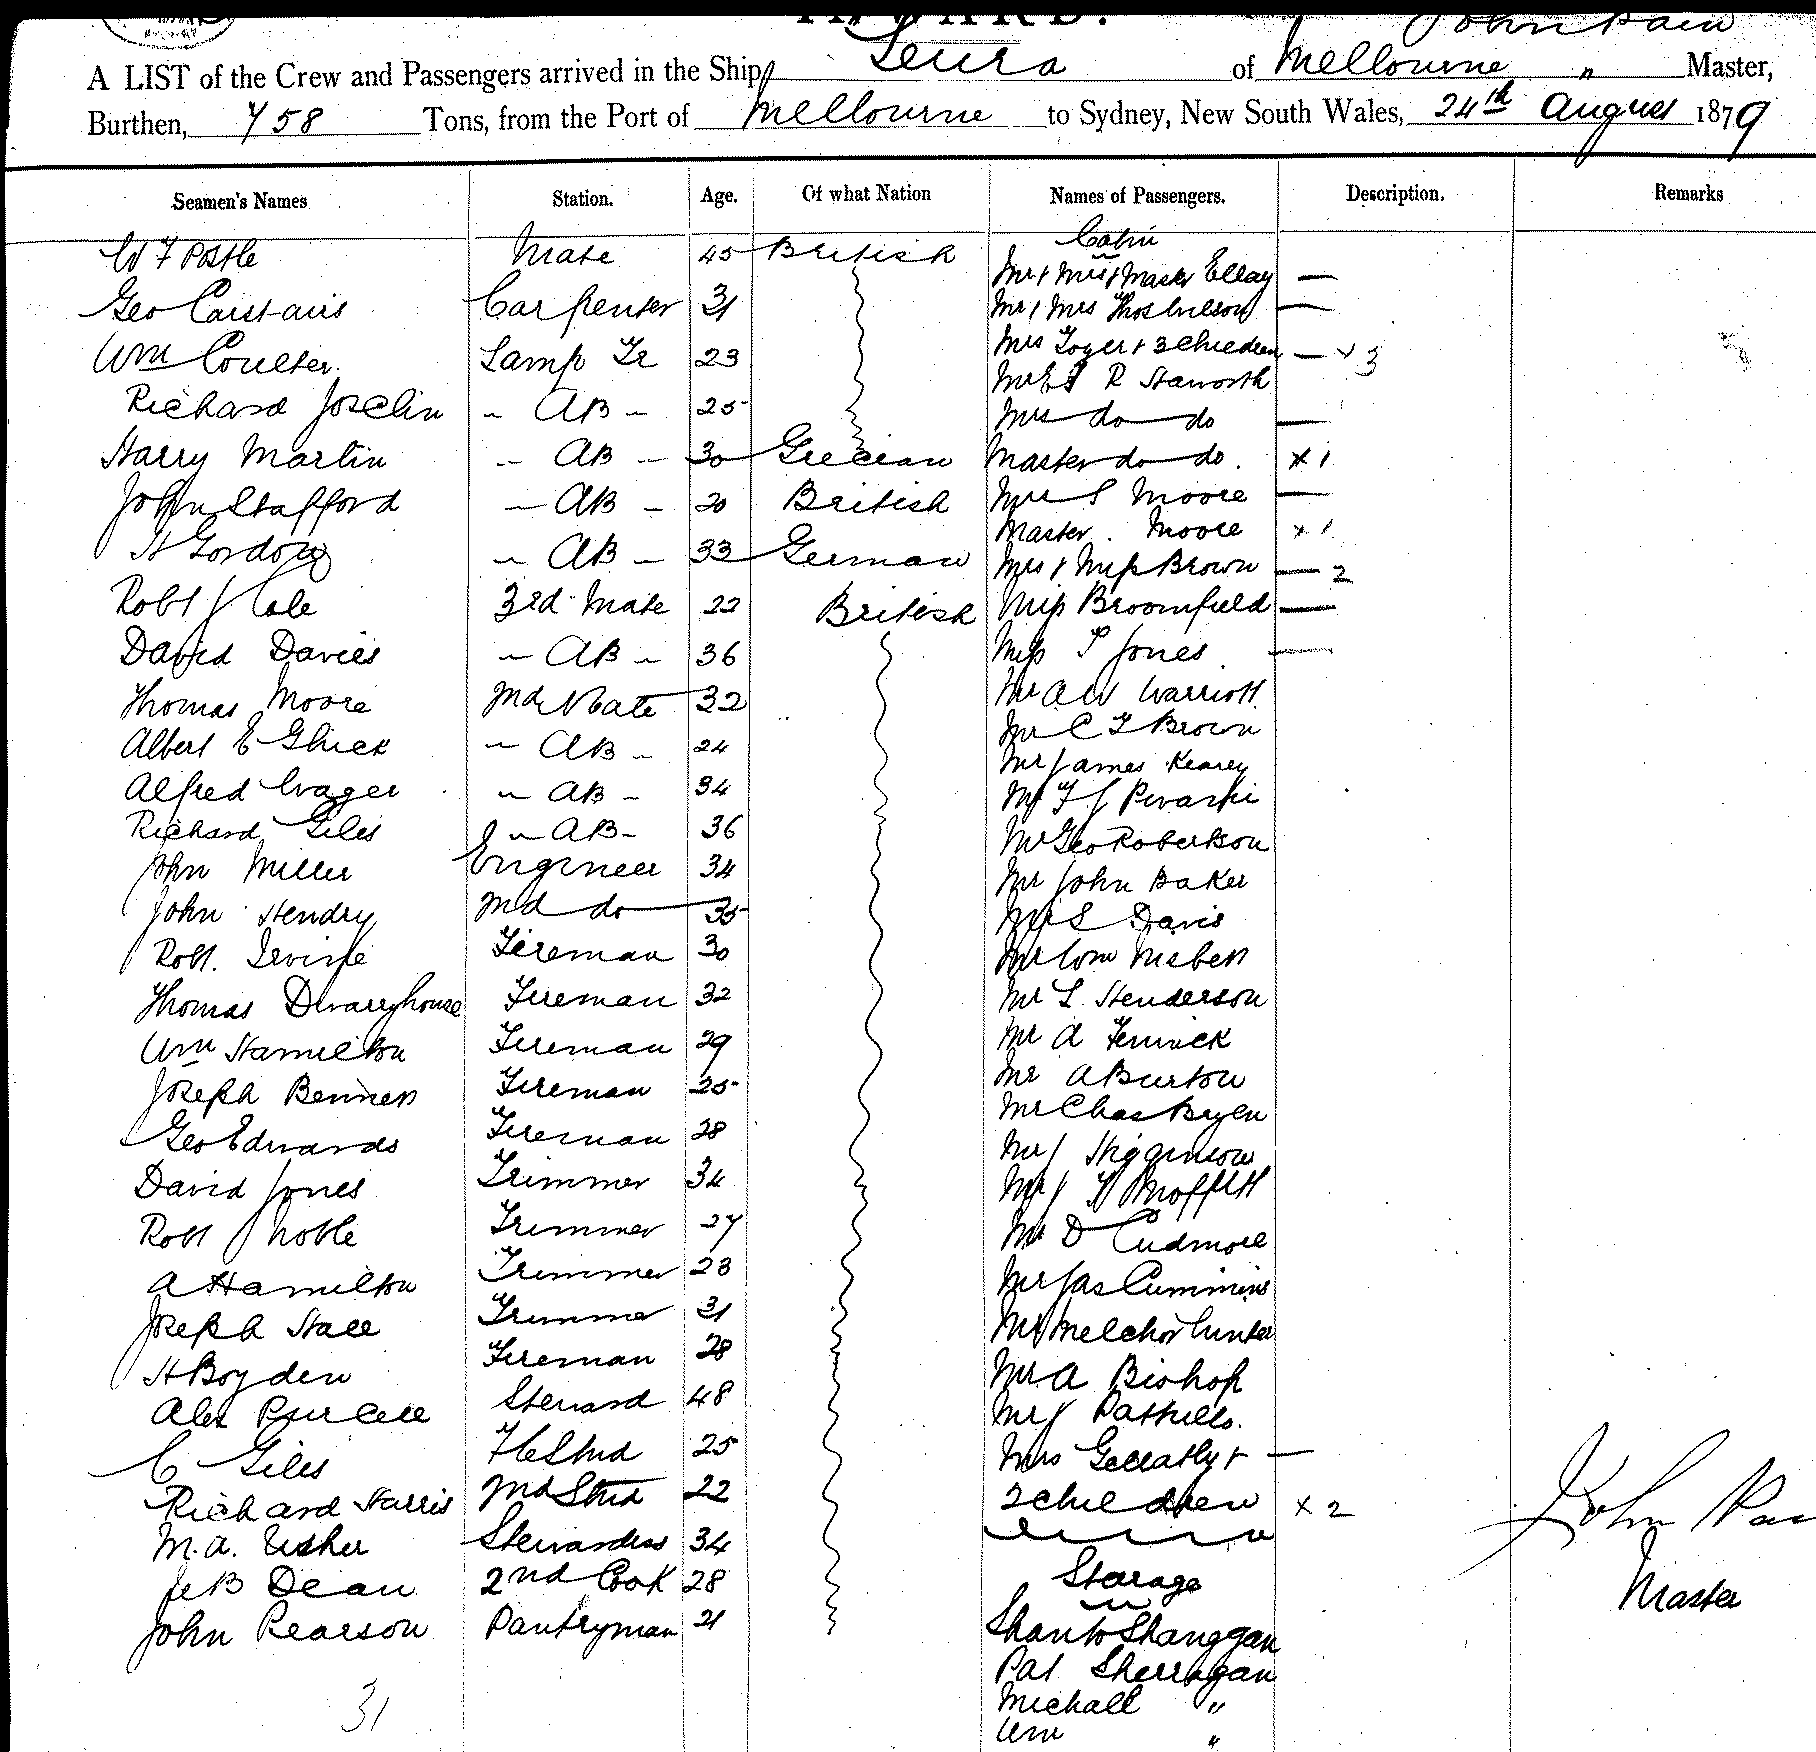 John Pain
A LIST of the Crew and Passengers arrived in the Ship Leura of Melbourne " Master,
Burthen, 758 Tons, from the Port of Melbourne to Sydney, New South Wales, 24th August 1879
Seamen's Names Station. Age. Of what Nation Names of Passengers. Description. Remarks
Cabin
W F Postle Mate 45 British Mr + Mrs + Master Ellay —
Geo Carstairs Carpenter 31 Mr + Mrs Thos Wilson —
Wm Coulter. Lamp Tr 23 Mrs + 3 Children — + 3
R Haworth
Richard Joselin " AB " 25 Mrs do do —
Harry Martin " AB " 30 Grecian Master do do. x 1
John Stafford " AB " 20 British Mrs S Moore —
Master. Moore x 1
H Gordon " AB " 33 German Mrs + Miss Brown — 2
Robt J Cole 3rd Mate 22 British Miss Broomfield —
David Davies " AB " 36 Miss P Jones —
Thomas Moore 2nd Mate 32 Mr A W Warriott
Albert E Glück " AB " 24 Mr C F Brown
Mr James Kearey
Alfred Wager " AB " 34 Mr F J
Richard Giles " AB " 36 Mr Geo Robertson
John Miller Engineer 34 Mr John Baker
John Hendry 2nd do 35 Mr S Davis
Robt. Irvine Fireman 30 Mr Wm Nisbett
Thomas Dwarryhouse Fireman 32 Mr L Henderson
Wm Hamilton Fireman 29 Mr A Fenwick
Joseph Bennett Fireman 25 Mr A Burton
Mr Chas Bryen
Geo Edwards Fireman 28 Mr J Higginson
David Jones Trimmer 34 Mr J H Moffitt
Robt Noble Trimmer 27 Mr D Cudmore
A Hamilton Trimmer 23 Mr Jas Cummins
Joseph Hall Trimmer 31 Mr Melchor Winter
H Boyden Fireman 28 Mr A Bishop
Alex Purcell Steward 48 Mr J Pattullo.
C Giles F C Stwd 25 Mrs Gellatly + —
Richard Harris 2nd Stwd 22 2 children x 2
M. A. Usher Stewardess 34
J B Dean 2nd Cook 28 Starage
John Pearson Pantryman 21 Shanggan
Pat Sherragan
Michall "
Wm "
31
John Pai
Master